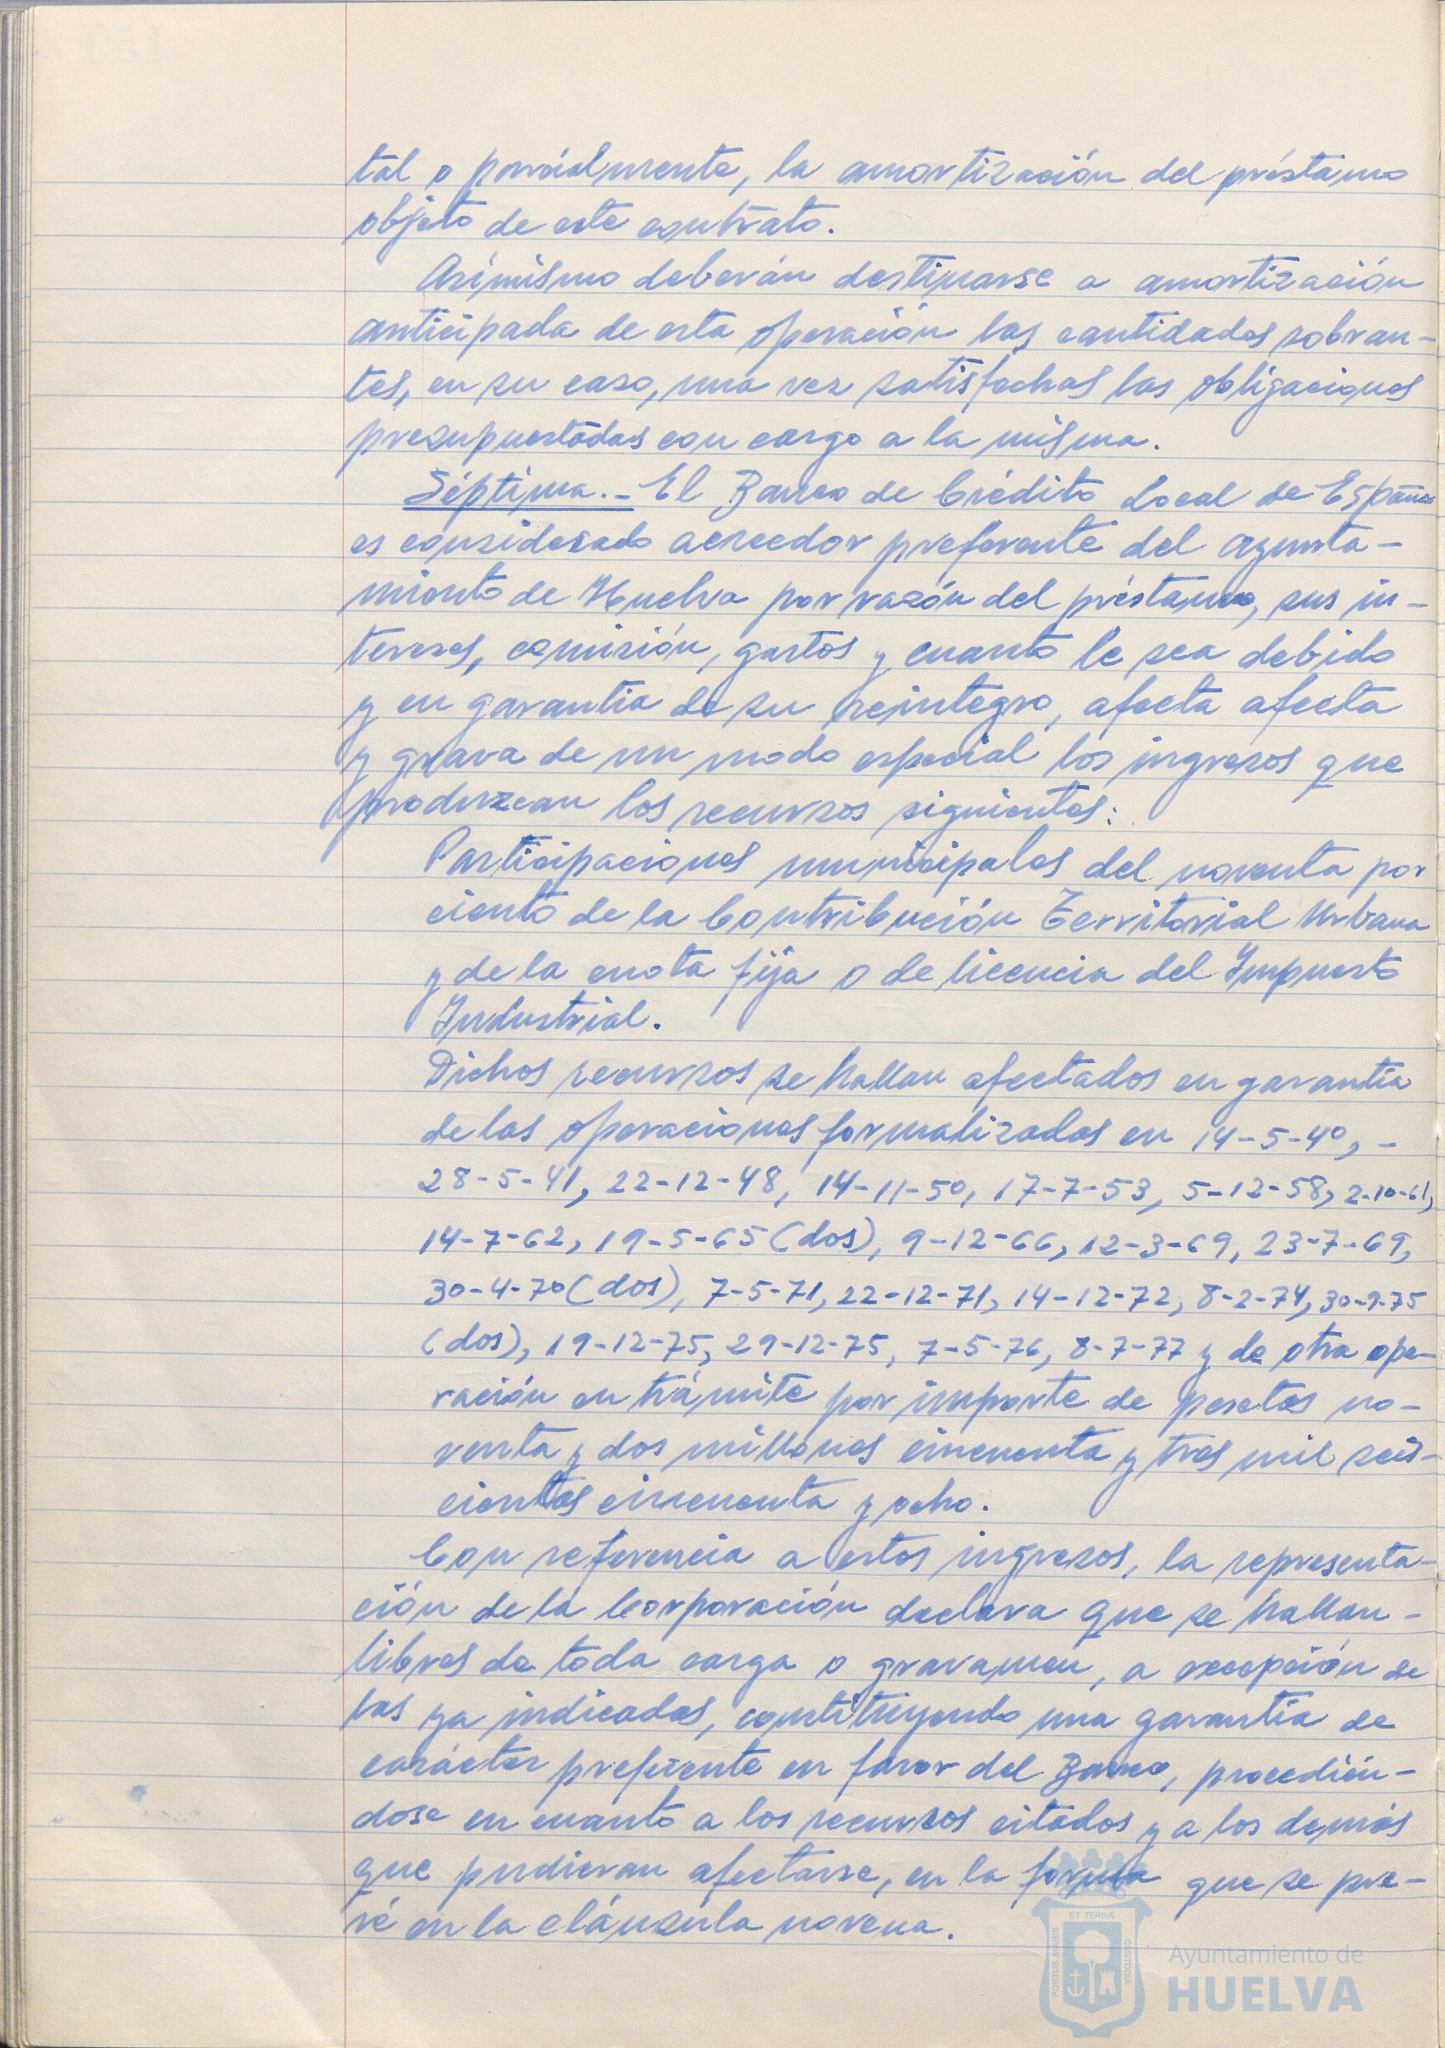 tal o parcialmente, la amortización del préstamo
objeto de este contrato.
Asímismo deberán destinarse a amortización
anticipada de esta operación las cantidades sobran-
tes, en su caso, una vez satisfechas las obligaciones
presupuestadas con cargo a la misma.
Séptima.- El Banco de Crédito Local de España
es considerado acreedor preferente del ayunta-
miento de Huelva por razón del préstamo, sus in-
tereses, comisión, gastos y cuanto le sea debido
y en garantia de su reintegro, afecta afecta
y grava de un modo especial los ingresos que
produzcan los recursos siguientes:
Participaciones municipales del noventa por
ciento de la Contribución Territorial Urbana
y de la cuota fija o de licencia del Impuesto
Industrial.
Dichos recursos se hallan afectados en garantia
de las operaciones formalizadas en 14-5-40, -
28-5-41, 22-12-48, 14-11-50, 17-7-53, 5-12-58, 2-10-61,
14-7-62, 19-5-65 (dos), 9-12-66, 12-3-69, 23-7-69,
30-4-70 (dos), 7-5-71, 22-12-71, 14-12-72, 8-2-74, 30-9-75
(dos), 19-12-75, 29-12-75, 7-5-76, 8-7-77 y de otra ope-
ración en trámite por importe de pesetas no-
venta y dos millones cincuenta y tres mil seis-
cientas cincuenta y ocho.
Con referencia a estos ingresos, la representa-
ción de la Corporación declara que se hallan -
libres de toda carga o gravamen, a excepción de
las ya indicadas, constituyendo una garantia de
carácter preferente en favor del Banco, procedién-
dose en cuanto a los recursos citados y a los demás
que pudieran afectarse, en la forma que se pre-
vé en la cláusula novena.
PORTUS MARIS ET TERRAE CUSTODIA
Ayuntamiento de
HUELVA